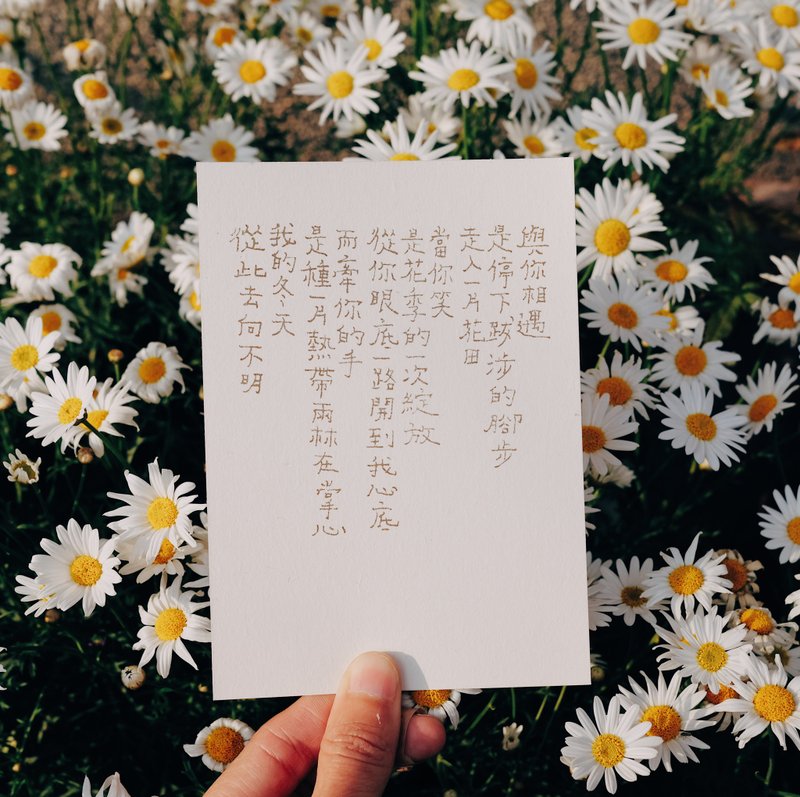 與你相遇
是停下跋涉的腳步
走入一片花田
當你笑
是花季的一次綻放
從你眼底一路開到我心底
而牽你的手
是種一片熱帶雨林在掌心
我的冬天
從此去向不明